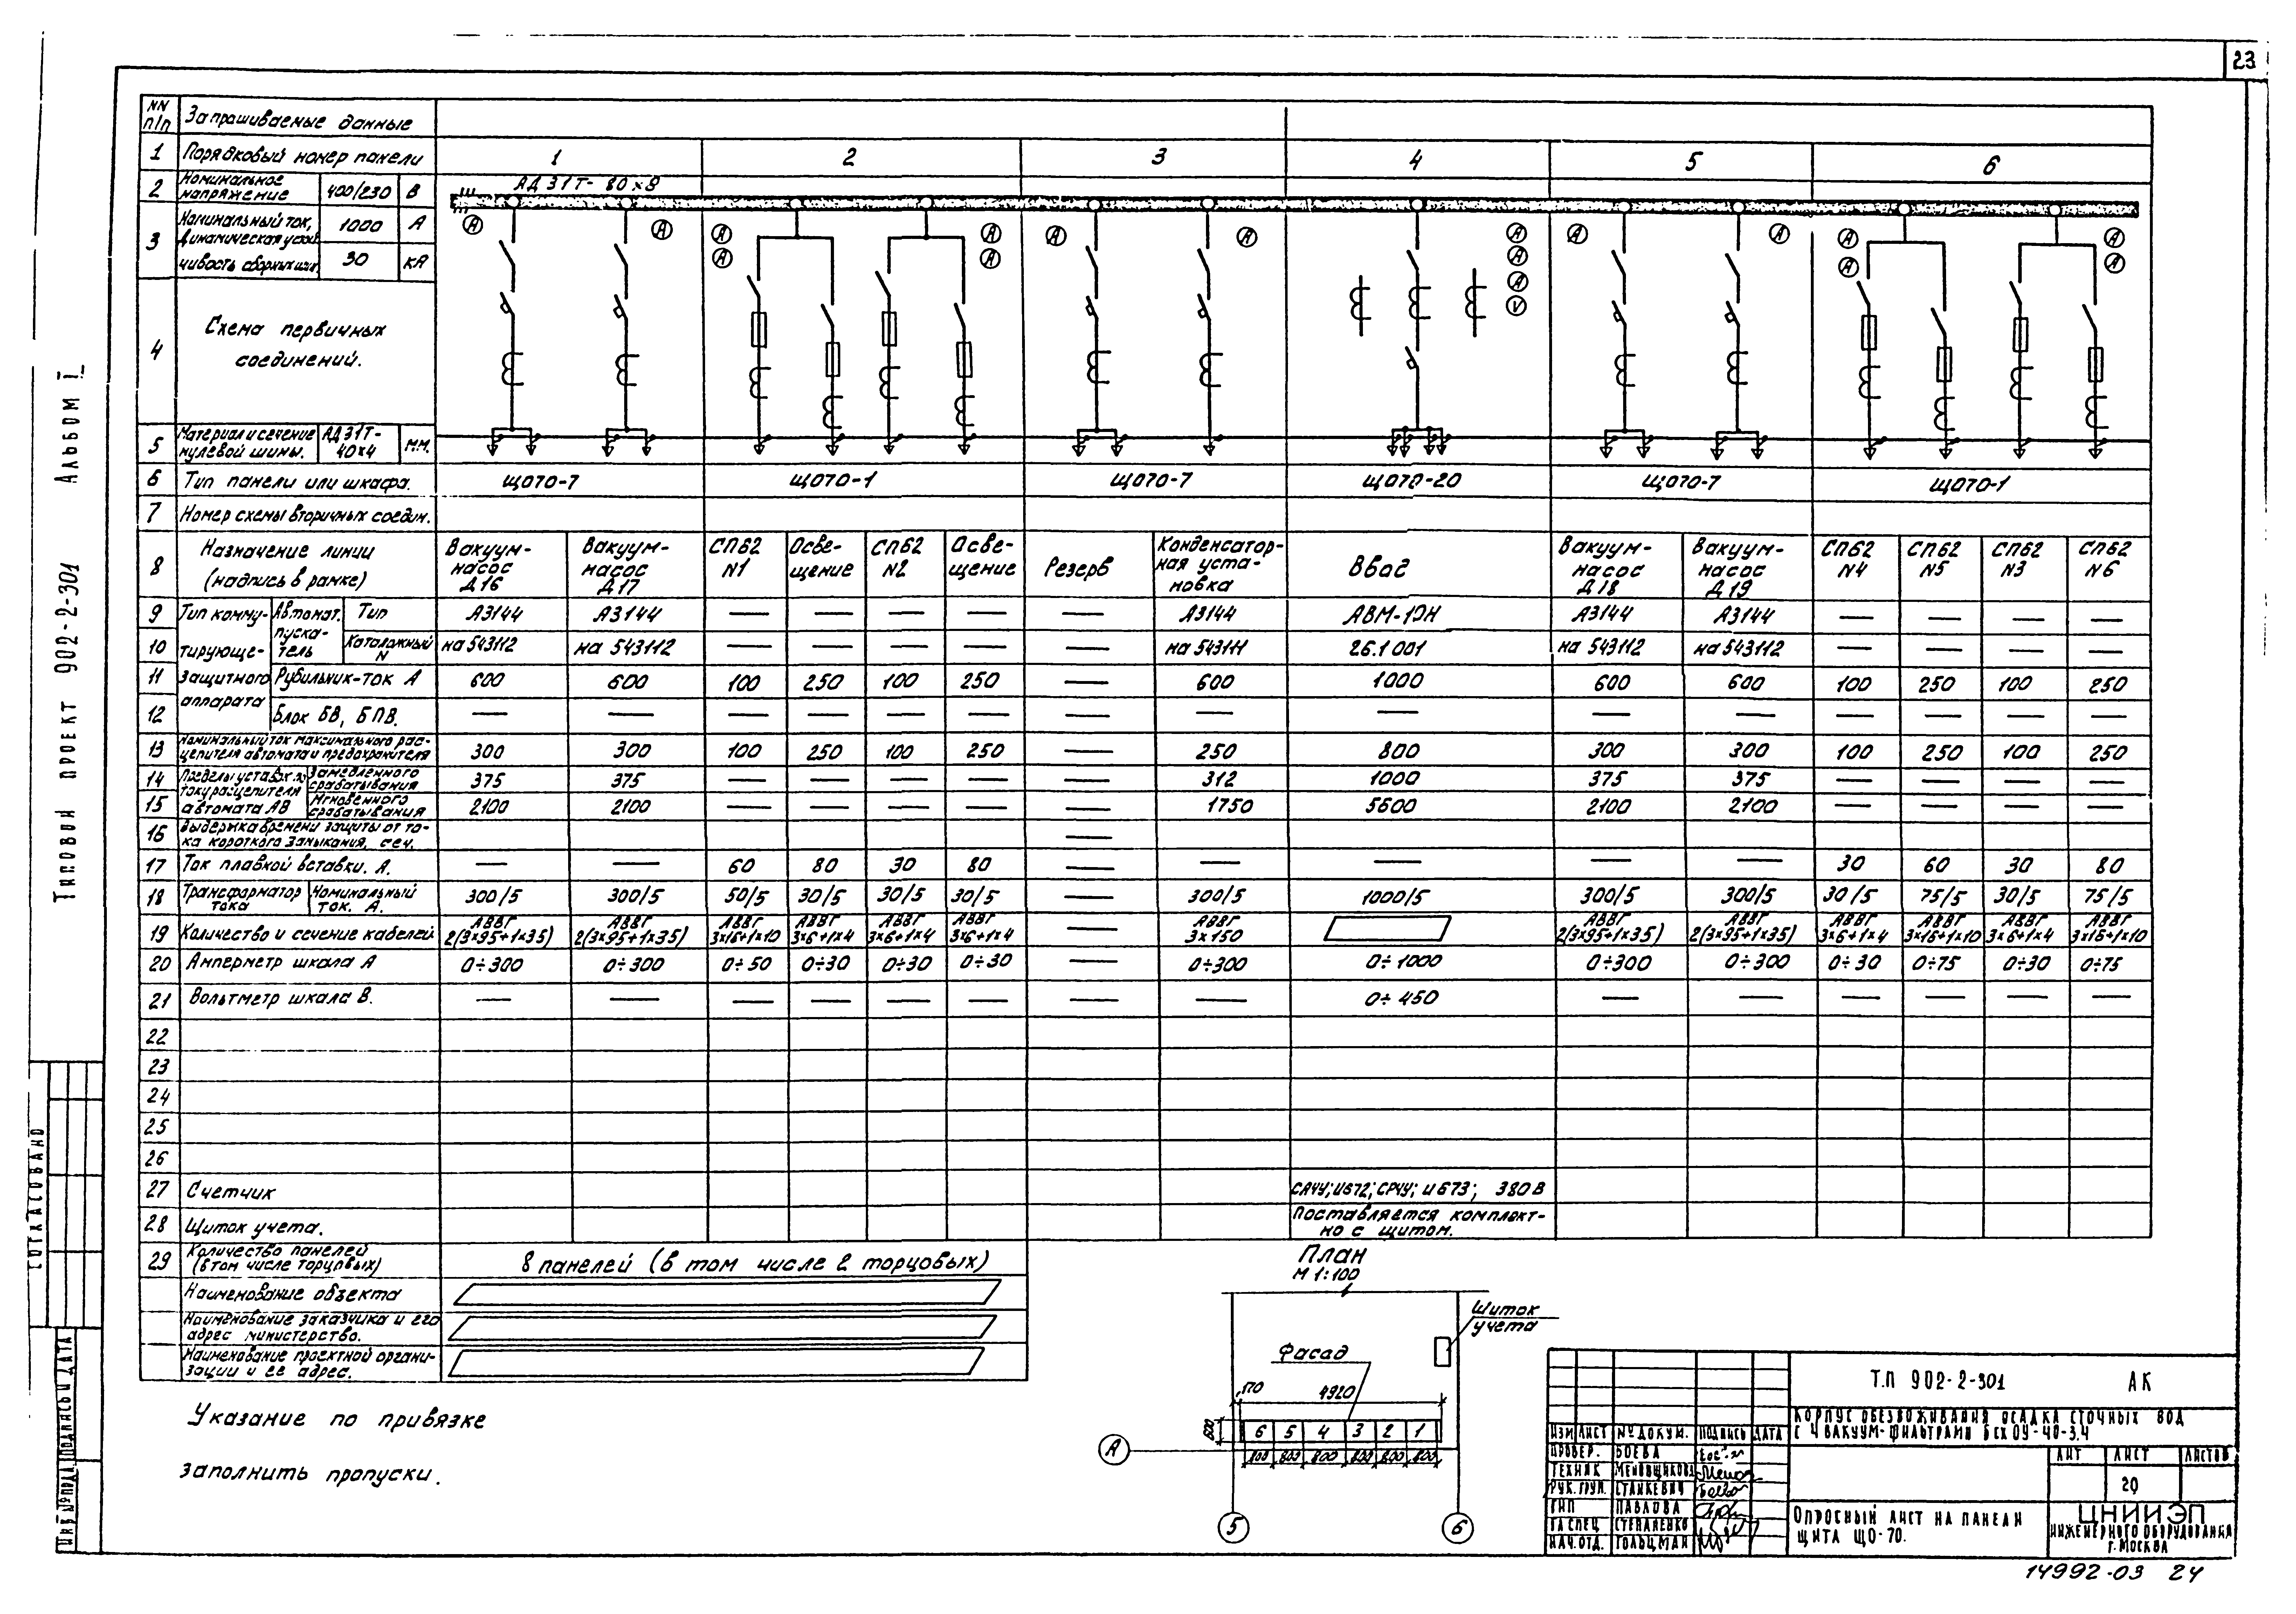 23
NN п/п Запрашиваемые данные
1 Порядковый номер панели 1 2 3 4 5 6
2 Номинальное напряжение 400/230 В
АД 31Т- 80×8
3 Номинальный ток, 1000 А
динамическая устой-
чивость сборных шин. 30 кА
А А А А А А А А А А А V А А А А А А
4 Схема первичных
соединений.
5 Материал и сечение нулевой шины. АД31Т-40×4 мм.
6 Тип панели или шкафа. ЩО70-7 ЩО70-1 ЩО70-7 ЩО70-20 ЩО70-7 ЩО70-1
7 Номер схемы вторичных соедин.
8 Назначение линии (надпись в рамке) Вакуум-насос Д16 Вакуум-насос Д17 СПБ2 N1 Осве-щение СПБ2 N2 Осве-щение Резерв Конденсатор-ная уста-новка Ввод Вакуум-насос Д18 Вакуум-насос Д19 СПБ2 N4 СПБ2 N5 СПБ2 N3 СПБ2 N6
9 Тип комму- Автомат. Тип А3144 А3144 — — — — — А3144 АВМ-10Н А3144 А3144 — — — —
10 тирующе- пуска-тель Каталожный N на 543112 на 543112 — — — — — 26.1001 на 543112 на 543112 — — — —
11 защитного Рубильник-ток А 600 600 100 250 100 250 — 600 1000 600 600 100 250 100 250
12 аппарата Блок БВ, БПВ. — — — — — — — — — — — — — — —
13 Номинальный ток максимального рас-цепителя автомата и предохранителя 300 300 100 250 100 250 — 250 800 300 300 100 250 100 250
14 Пределы уставок по Замедленного срабатывания 375 375 — — — — — 312 1000 375 375 — — — —
15 току расцепителя автомата АВ Мгновенного срабатывания 2100 2100 — — — — — 1750 5600 2100 2100 — — — —
16 Выдержка времени защиты от то-ка короткого замыкания, сек. —
17 Ток плавкой вставки. А. — — 60 80 30 80 — — — — — 30 60 30 80
18 Трансформатор тока Номинальный ток. А. 300/5 300/5 50/5 30/5 30/5 30/5 — 300/5 1000/5 300/5 300/5 30/5 75/5 30/5 75/5
19 Количество и сечение кабелей АВВГ 2(3×95+1×35) АВВГ 2(3×95+1×35) АВВГ 3×16+1×10 АВВГ 3×6+1×4 АВВГ 3×6+1×4 АВВГ 3×6+1×4 — АВВГ 3×150 АВВГ 2(3×95+1×35) АВВГ 2(3×95+1×35) АВВГ 3×6+1×4 АВВГ 3×16+1×10 АВВГ 3×6+1×4 АВВГ 3×16+1×10
20 Амперметр шкала А 0÷300 0÷300 0÷50 0÷30 0÷30 0÷30 — 0÷300 0÷1000 0÷300 0÷300 0÷30 0÷75 0÷30 0÷75
21 Вольтметр шкала В. — — — — — — — — 0÷450 — — — — — —
22
23
24
25
26
27 Счетчик САЧУ; И672; СРЧУ; И673; 380 В
28 Щиток учета. Поставляется комплект-но с щитом.
29 Количество панелей (в том числе торцовых) 8 панелей (в том числе 2 торцовых)
Наименование объекта
Наименование заказчика и его адрес министерство.
Наименование проектной органи-зации и ее адрес.
Указание по привязке
Заполнить пропуски.
План
М 1:100
Щиток учета
Фасад
170 4920
800
6 5 4 3 2 1
800 800 800 800 800 800
А
5 6
Т.П 902-2-301 АК
Корпус обезвоживания осадка сточных вод
с 4 вакуум-фильтрами БсхОУ-40-3,4
Изм Лист № докум. Подпись Дата
Провер. Боева
Техник Меновщикова
Рук. груп. Станкевич
ГИП Павлова
Гл спец Степаненко
Нач. отд. Гольцман
Лит Лист Листов
20
Опросный лист на панели
щита ЩО-70.
ЦНИИЭП
инженерного оборудования
г. Москва
14992-03 24
Типовой проект 902-2-301 Альбом I
Согласовано
Инв № подл Подпись и дата